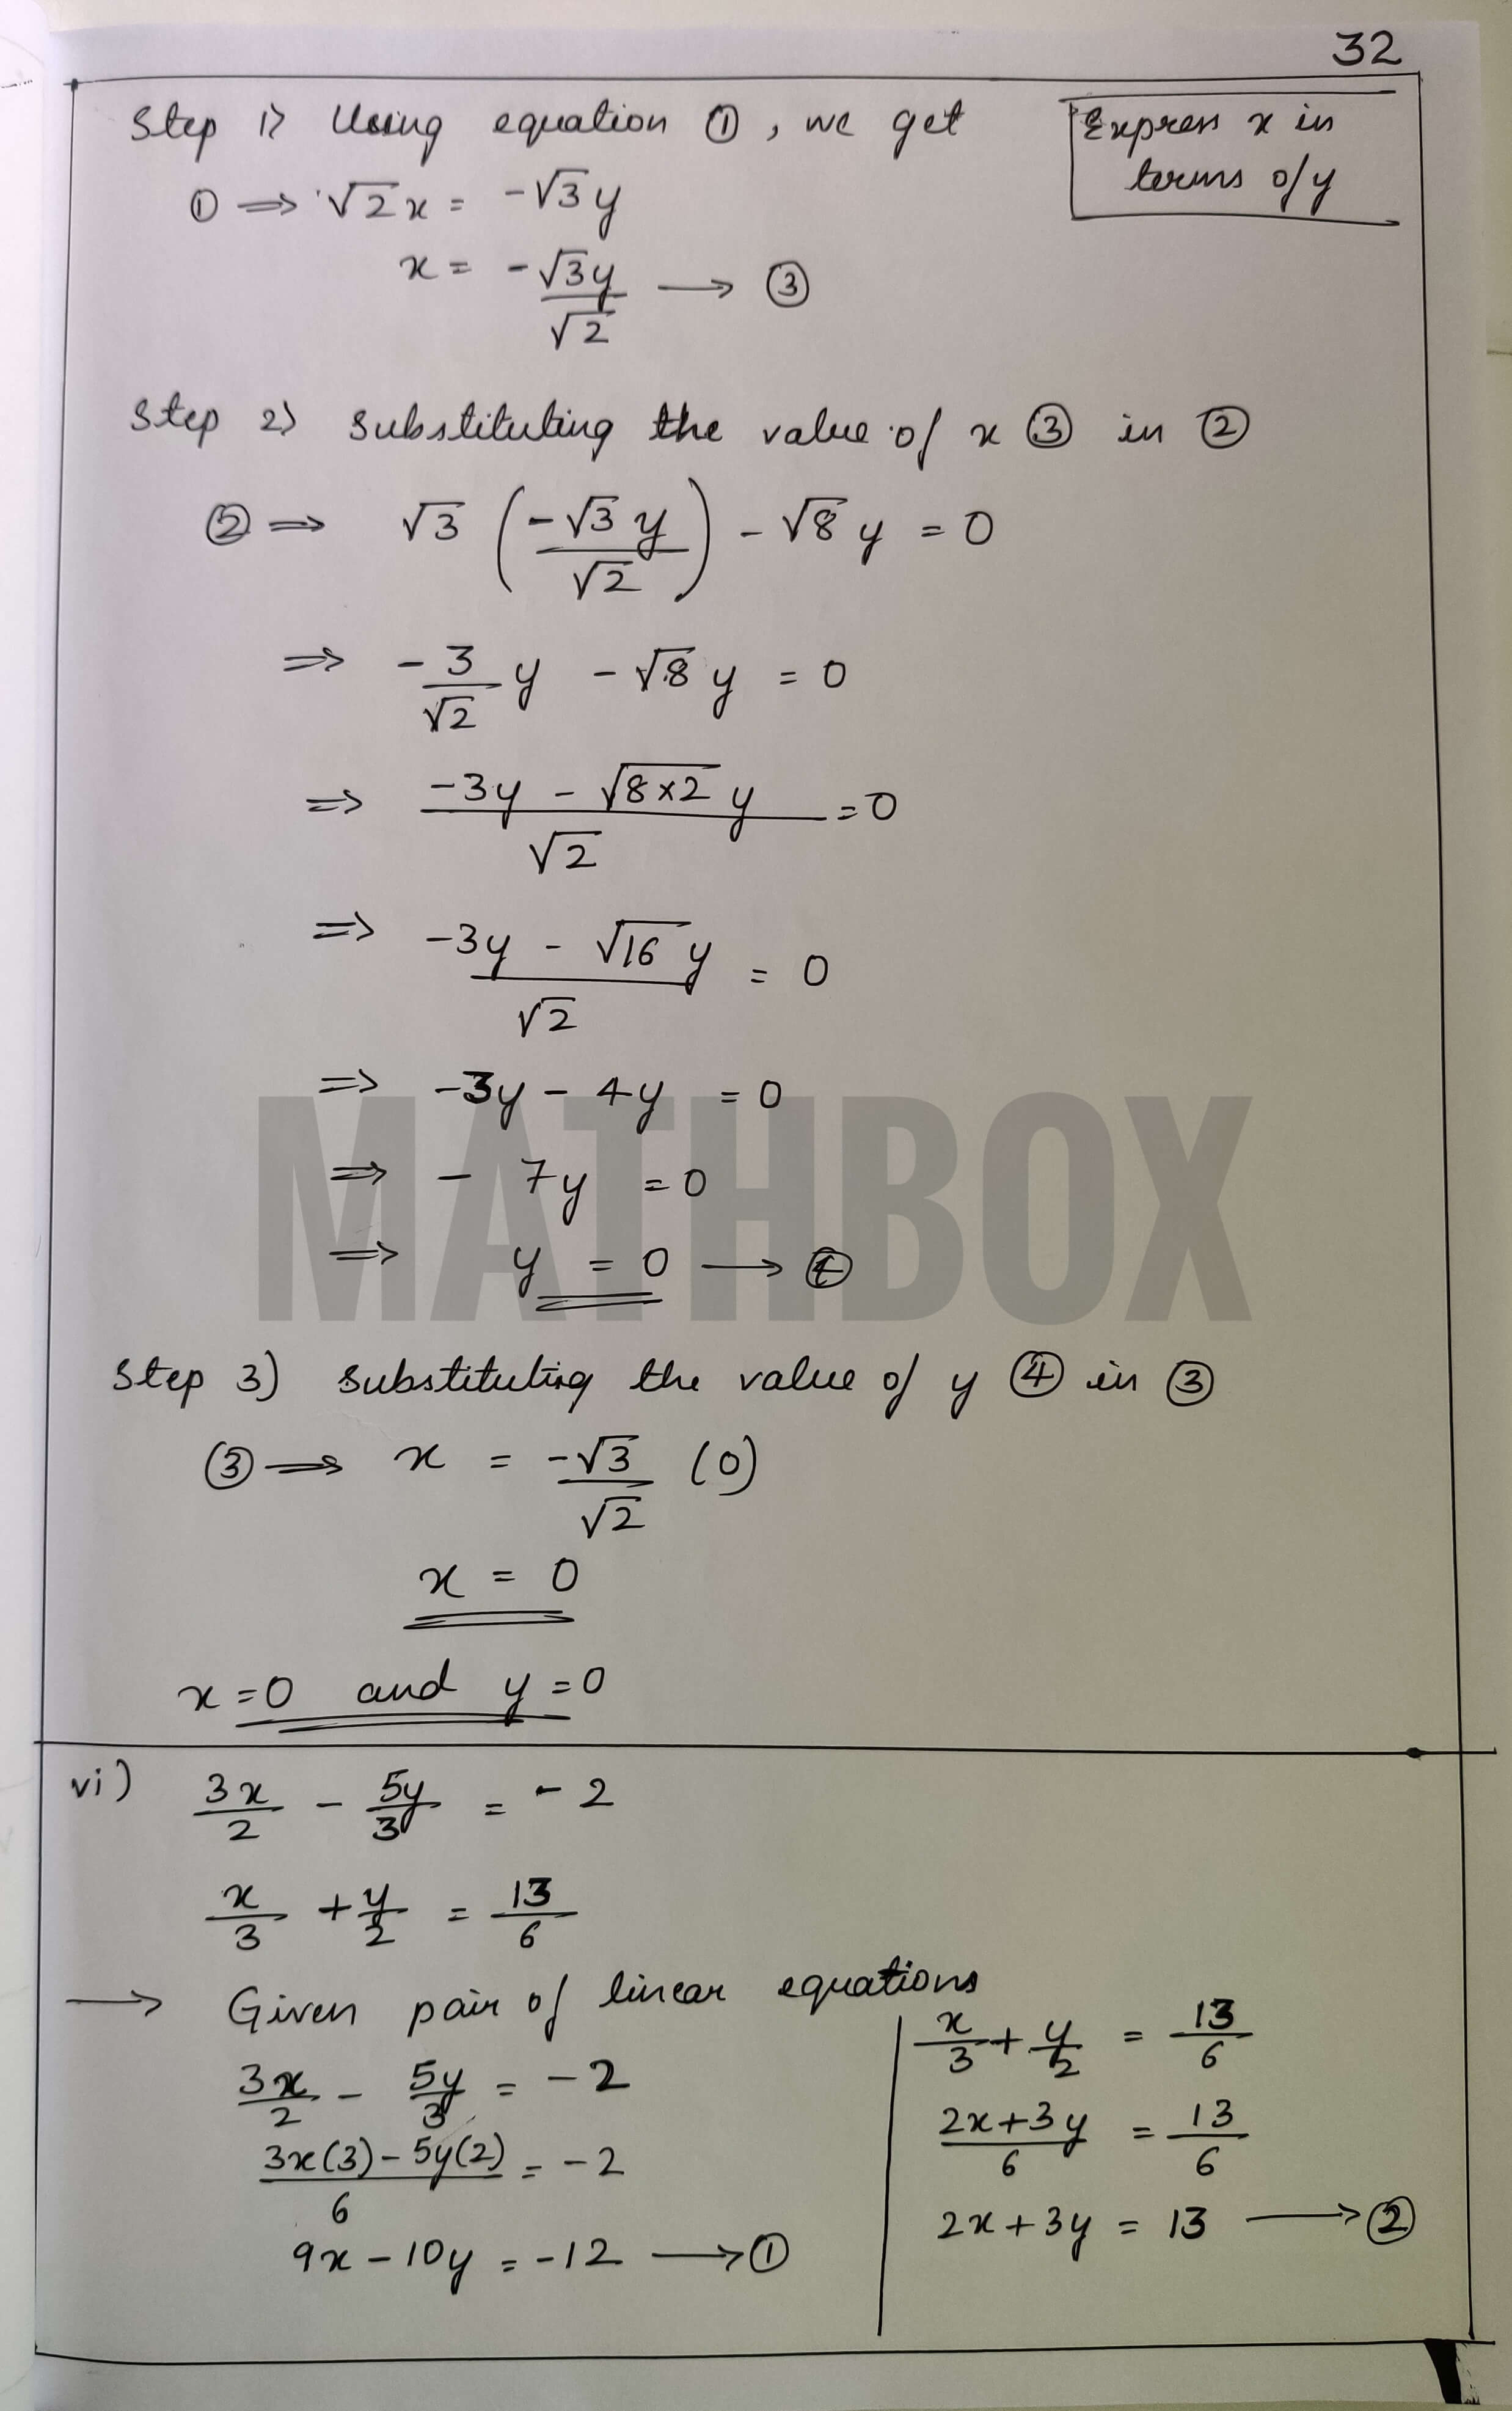 32
Step 1) Using equation ①, we get
Express x in
terms of y
① ⟹ √2x = -√3y
x = -√3y/√2 ⟶ ③
Step 2) Substituting the value of x ③ in ②
② ⟹ √3 (-√3y/√2) - √8y = 0
⟹ -3/√2 y - √8y = 0
⟹ (-3y - √(8×2)y)/√2 = 0
⟹ (-3y - √16y)/√2 = 0
⟹ -3y - 4y = 0
⟹ - 7y = 0
⟹ y = 0 ⟶ ④
MATHBOX
Step 3) Substituting the value of y ④ in ③
③ ⟹ x = -√3/√2 (0)
x = 0
x=0 and y=0
vi) 3x/2 - 5y/3 = -2
x/3 + y/2 = 13/6
⟶ Given pair of linear equations
3x/2 - 5y/3 = -2
(3x(3) - 5y(2))/6 = -2
9x - 10y = -12 ⟶ ①
x/3 + y/2 = 13/6
(2x+3y)/6 = 13/6
2x+3y = 13 ⟶ ②